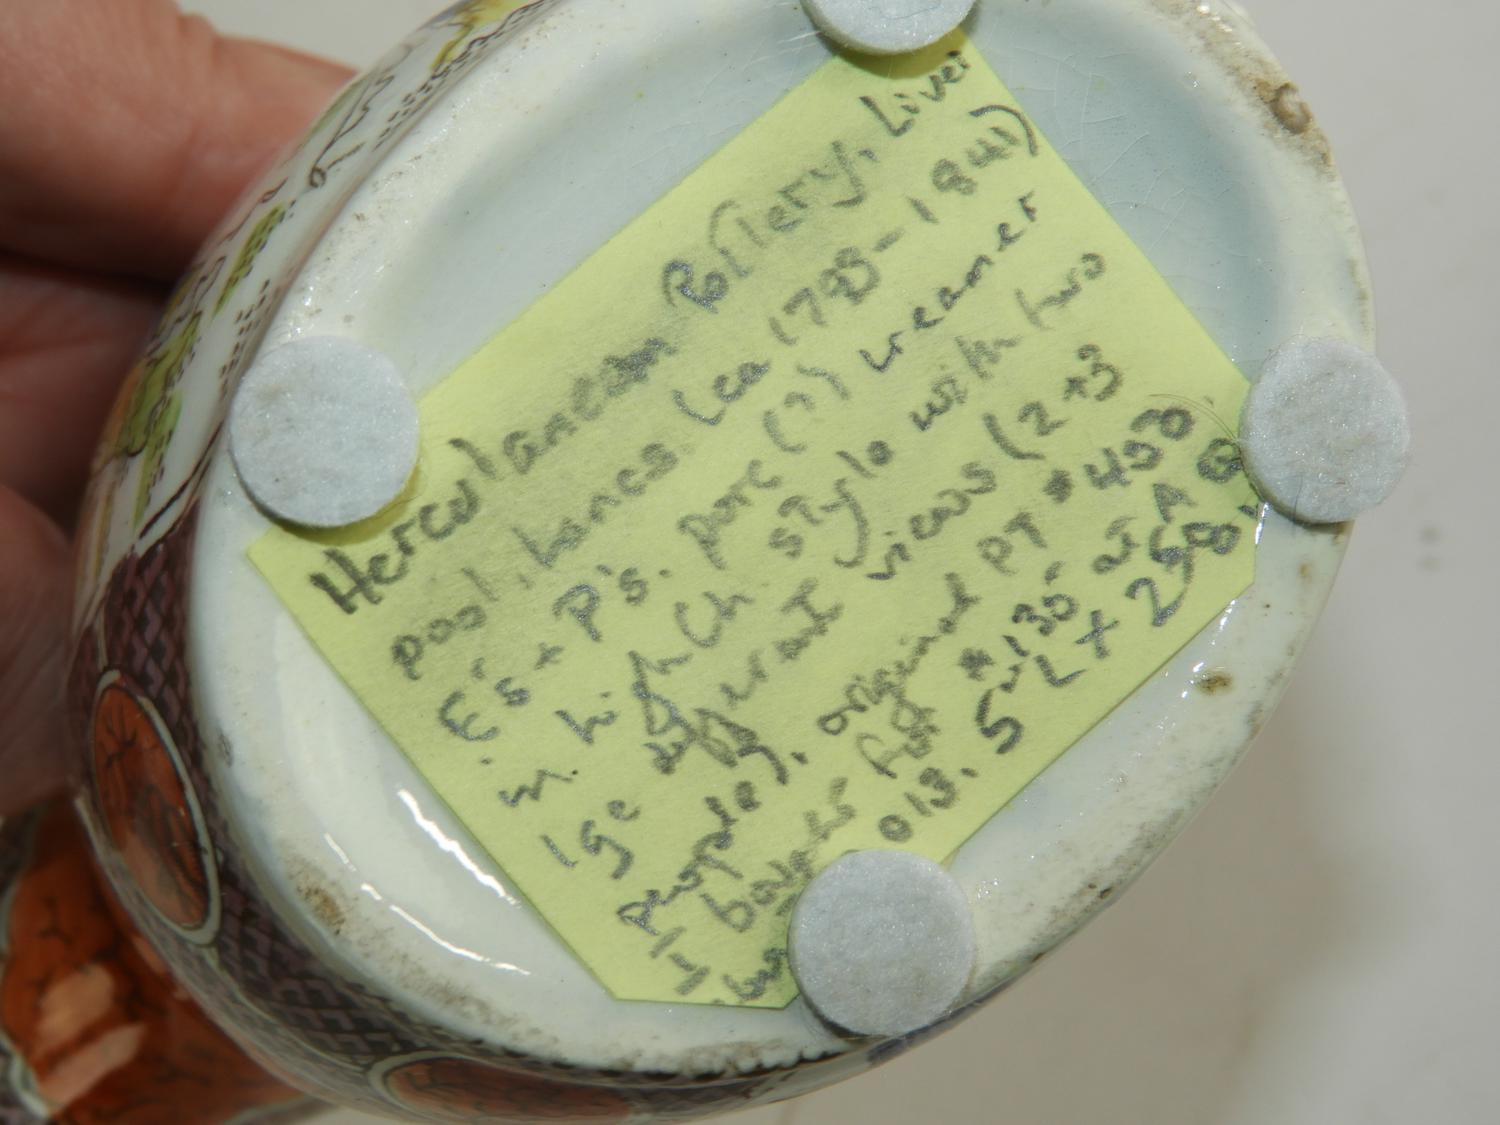 Herculaneum Pottery, Liver
pool, Lancs (ca 1793-1841)
E's + P's. porc (?) creamer
in high Ch style with two
lge different views (2+3
people), original PT # 493
I bought for * 130 at A
013. 5" L x 2 5/8"